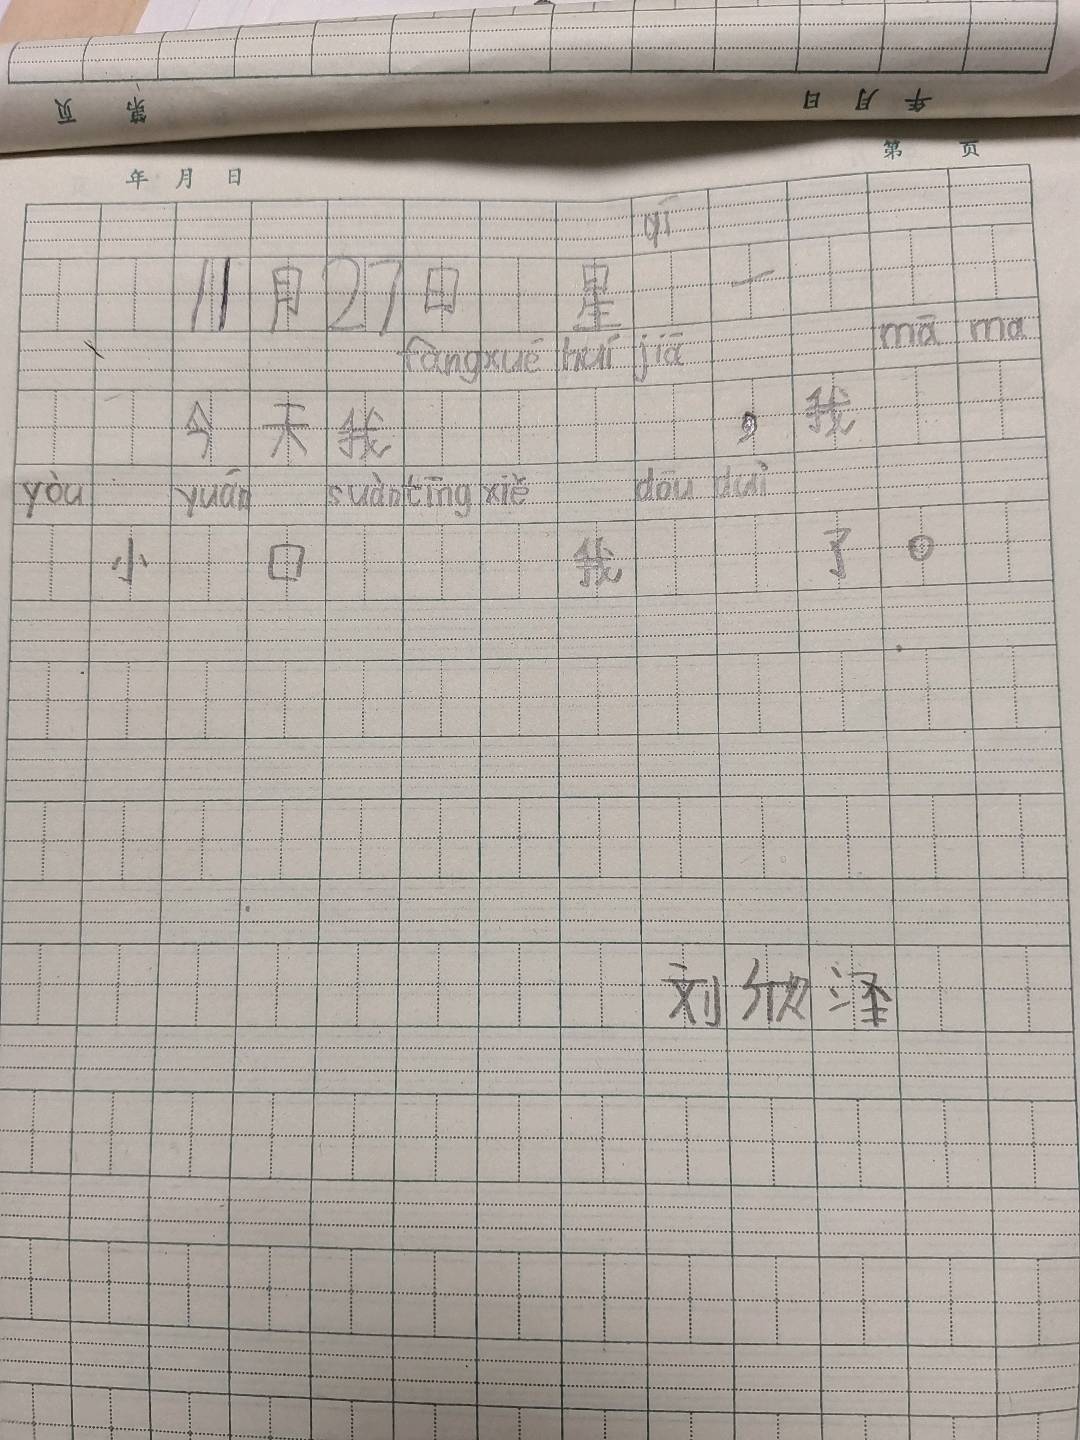 页 第 日 月 年
第 页
年 月 日
yī
11月27日 星 一
fàngxué huí jiā mā ma
今天我 ，我
yòu yuán suàn tīng xiě dōu duì
小 口 我 了。
刘欣泽